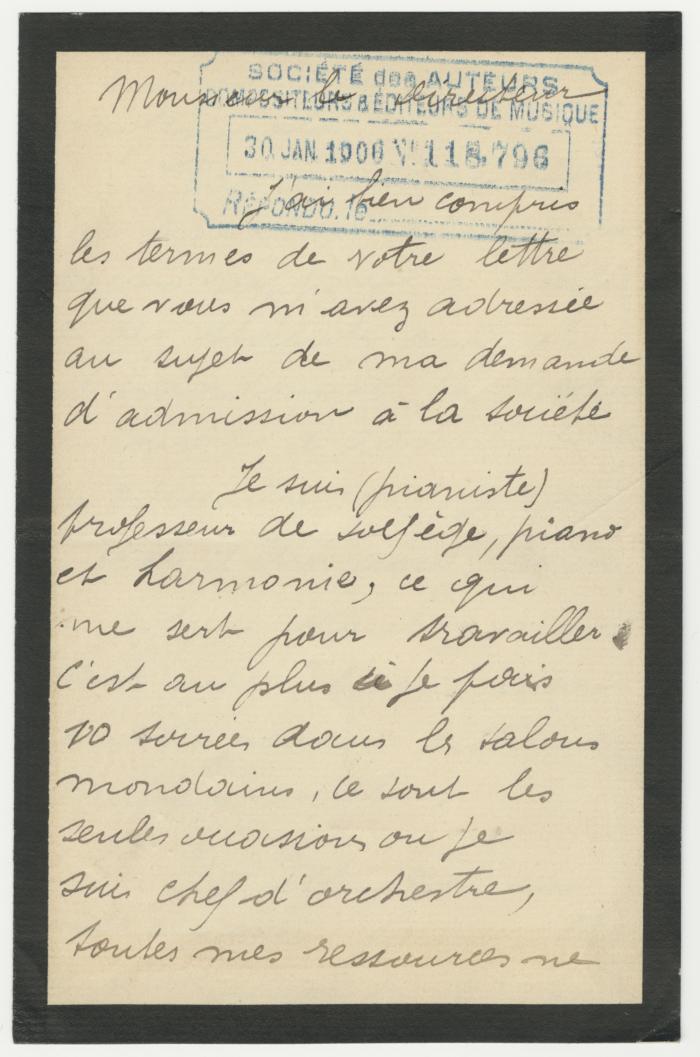 Monsieur le Directeur
SOCIÉTÉ des AUTEURS
COMPOSITEURS & ÉDITEURS DE MUSIQUE
30 JAN 1906 Nº 118.796
RÉPONDU, le
J'ai bien compris
les termes de votre lettre
que vous m'avez adressée
au sujet de ma demande
d'admission à la société
Je suis (pianiste)
professeur de solfège, piano
et harmonie, ce qui
me sert pour travailler
c'est au plus si je fais
10 soirées dans les salons
mondains, ce sont les
seules occasions ou je
suis chef d'orchestre,
toutes mes ressources ne